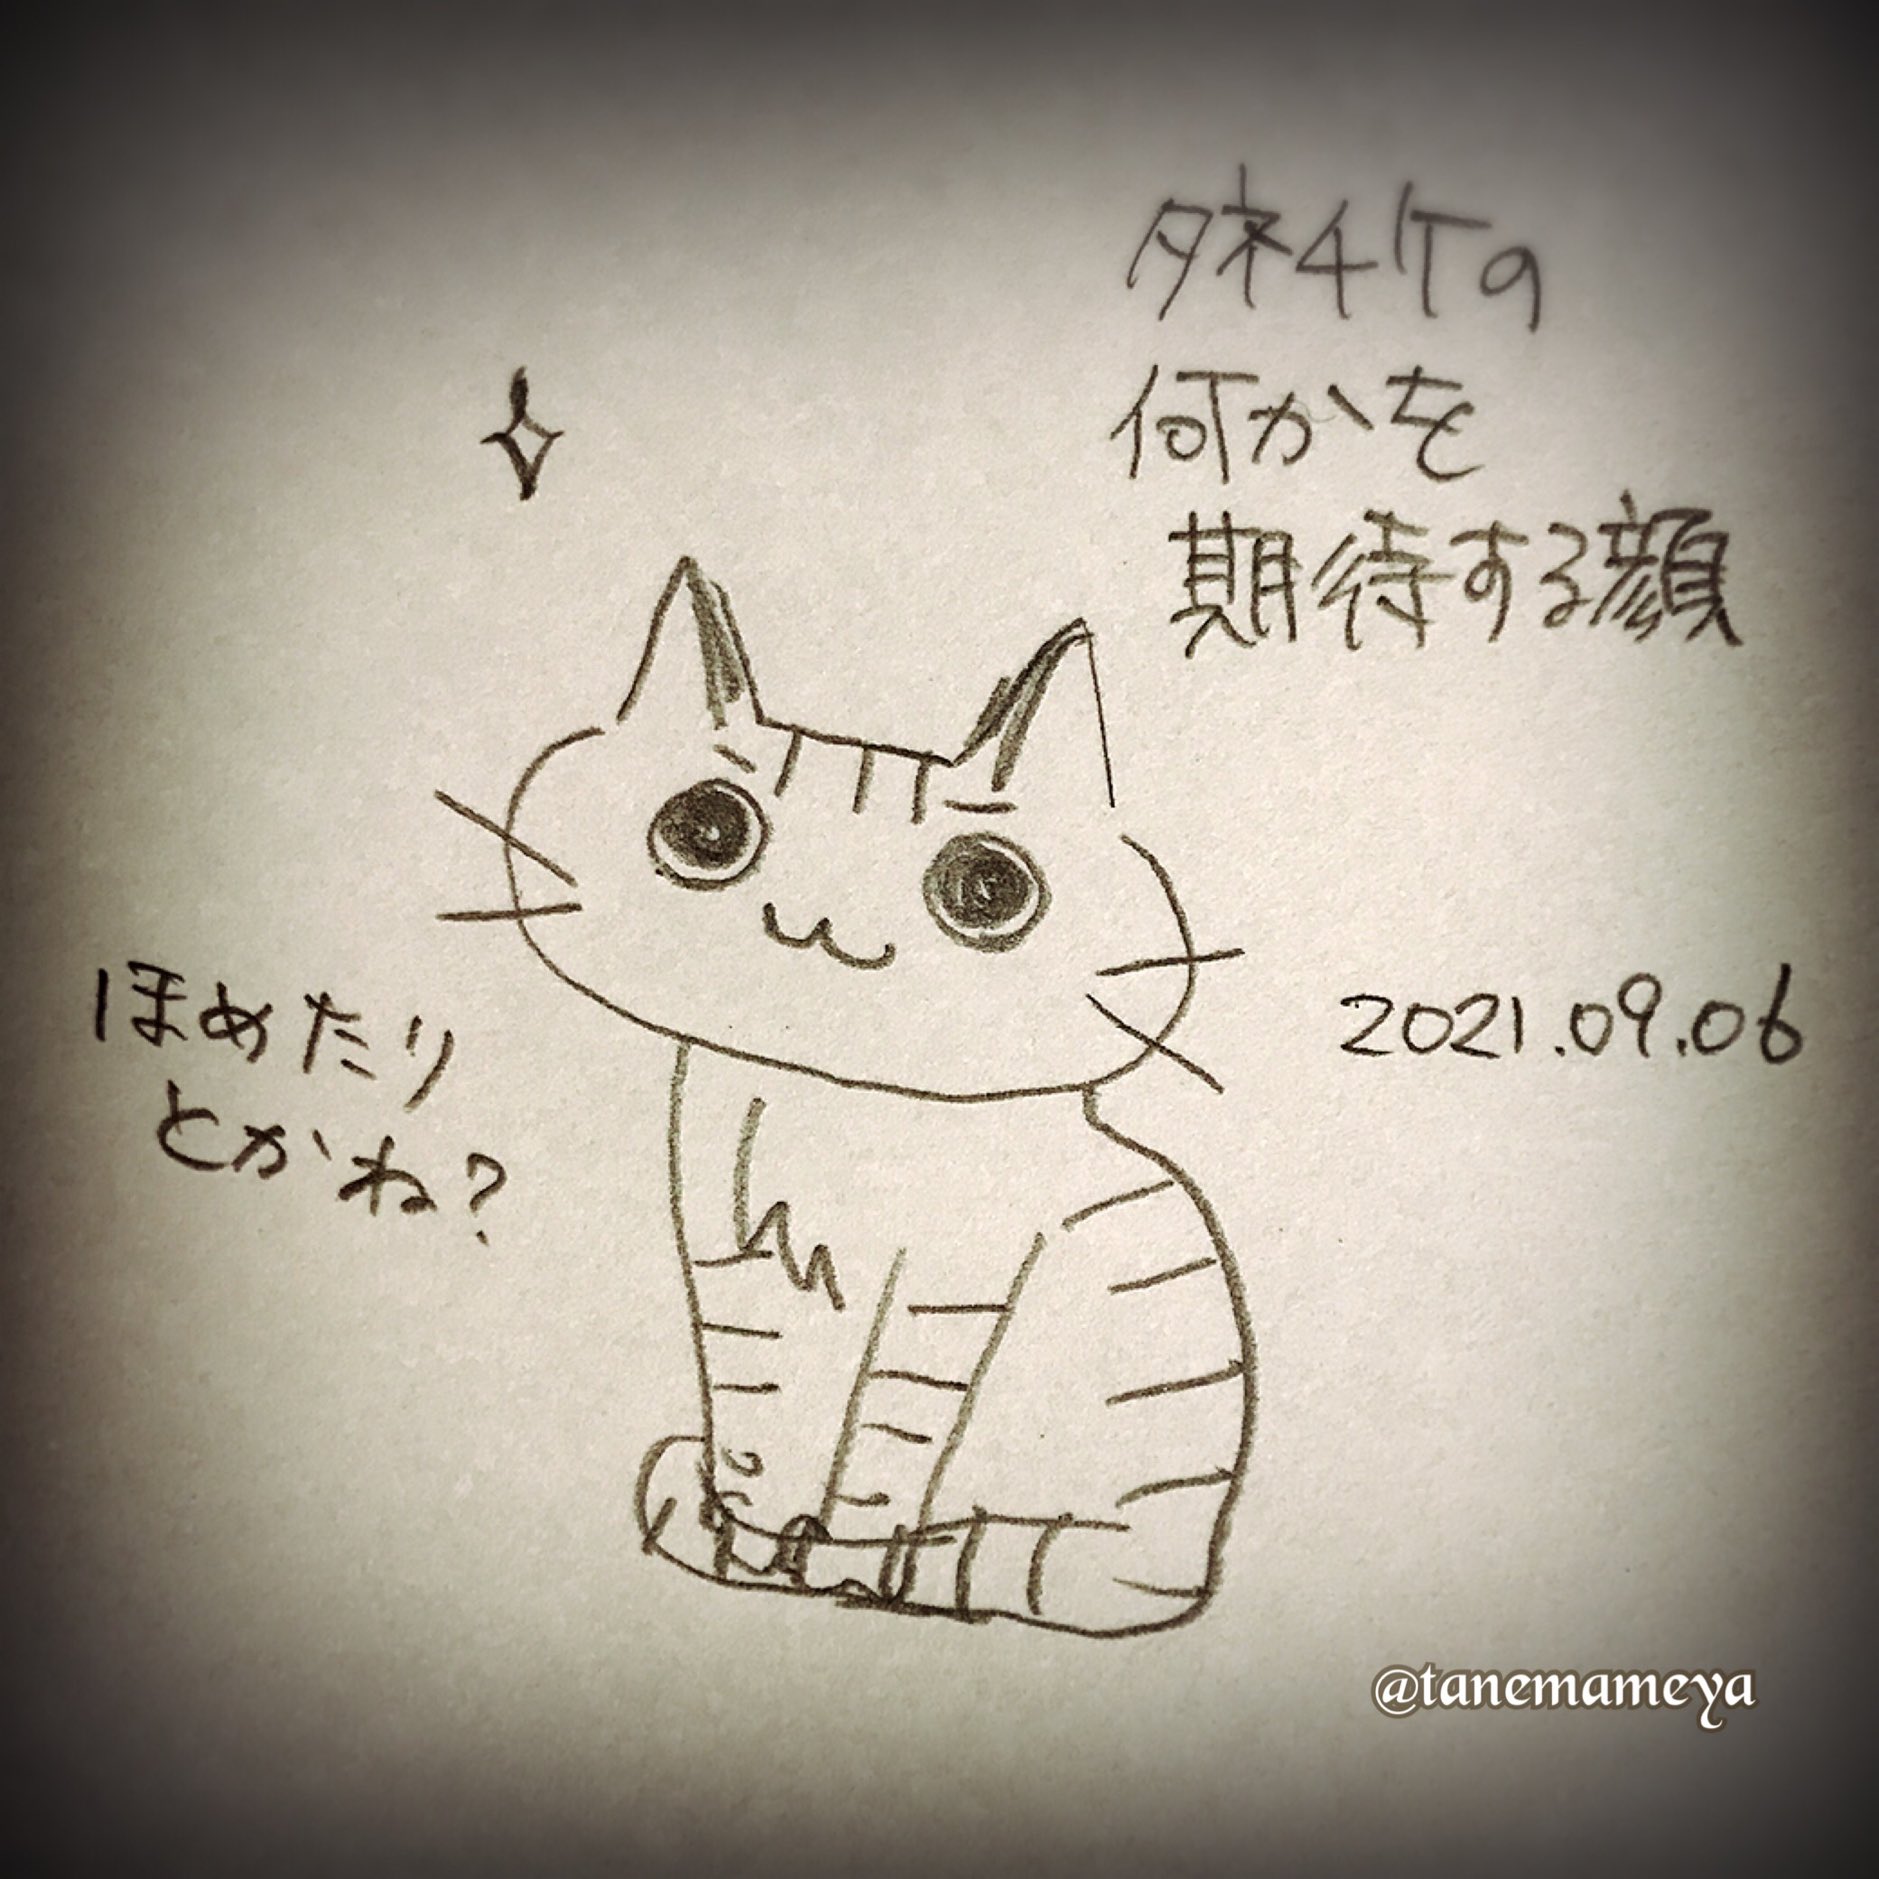 タネチケの
何かを
期待する顔
ほめたり
とかね?
2021.09.06
@tanemameya